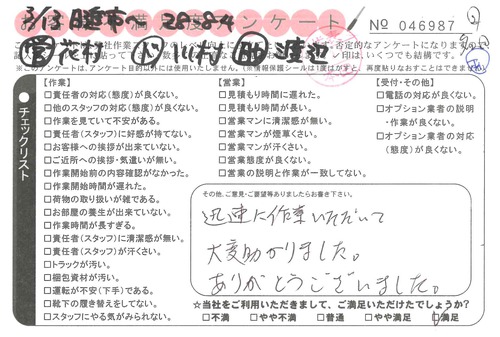 3/13 日進市へ 28284
お客様満足度アンケート
No 046987
営 花村 ド 川村 助 渡辺
※このアンケートは、アンケート目的以外には使用しません。(※情報保護シールは1度はがすと、再度貼りなおすことはできません)
チェックリスト
【作業】
□責任者の対応(態度)が良くない。
□他のスタッフの対応(態度)が良くない。
□作業を見ていて不安がある。
□責任者(スタッフ)に好感が持てない。
□お客様への挨拶が出来ていない。
□ご近所への挨拶・気遣いが無い。
□作業開始前の内容確認がなかった。
□作業開始時間が遅れた。
□荷物の取り扱いが雑である。
□お部屋の養生が出来ていない。
□作業時間が長すぎる。
□責任者(スタッフ)に清潔感が無い。
□責任者(スタッフ)が汗くさい。
□トラックが汚い。
□梱包資材が汚い。
□運転が不安(下手)である。
□靴下の履き替えをしてない。
□スタッフにやる気がみられない。
【営業】
□見積もり時間に遅れた。
□見積もり時間が長い。
□営業マンに清潔感が無い。
□営業マンが煙草くさい。
□営業マンが汗くさい。
□営業態度が良くない。
□営業の説明と作業が一致してない。
【受付・その他】
□電話の対応が良くない。
□オプション業者の説明
・作業が良くない。
□オプション業者の対応
(態度)が良くない。
その他、ご意見・ご要望等ありましたらお書き下さい。
迅速に作業いただいて
大変助かりました。
ありがとうございました。
☆当社をご利用いただきまして、ご満足いただけたでしょうか?
□不満 □やや不満 □普通 □やや満足 □満足